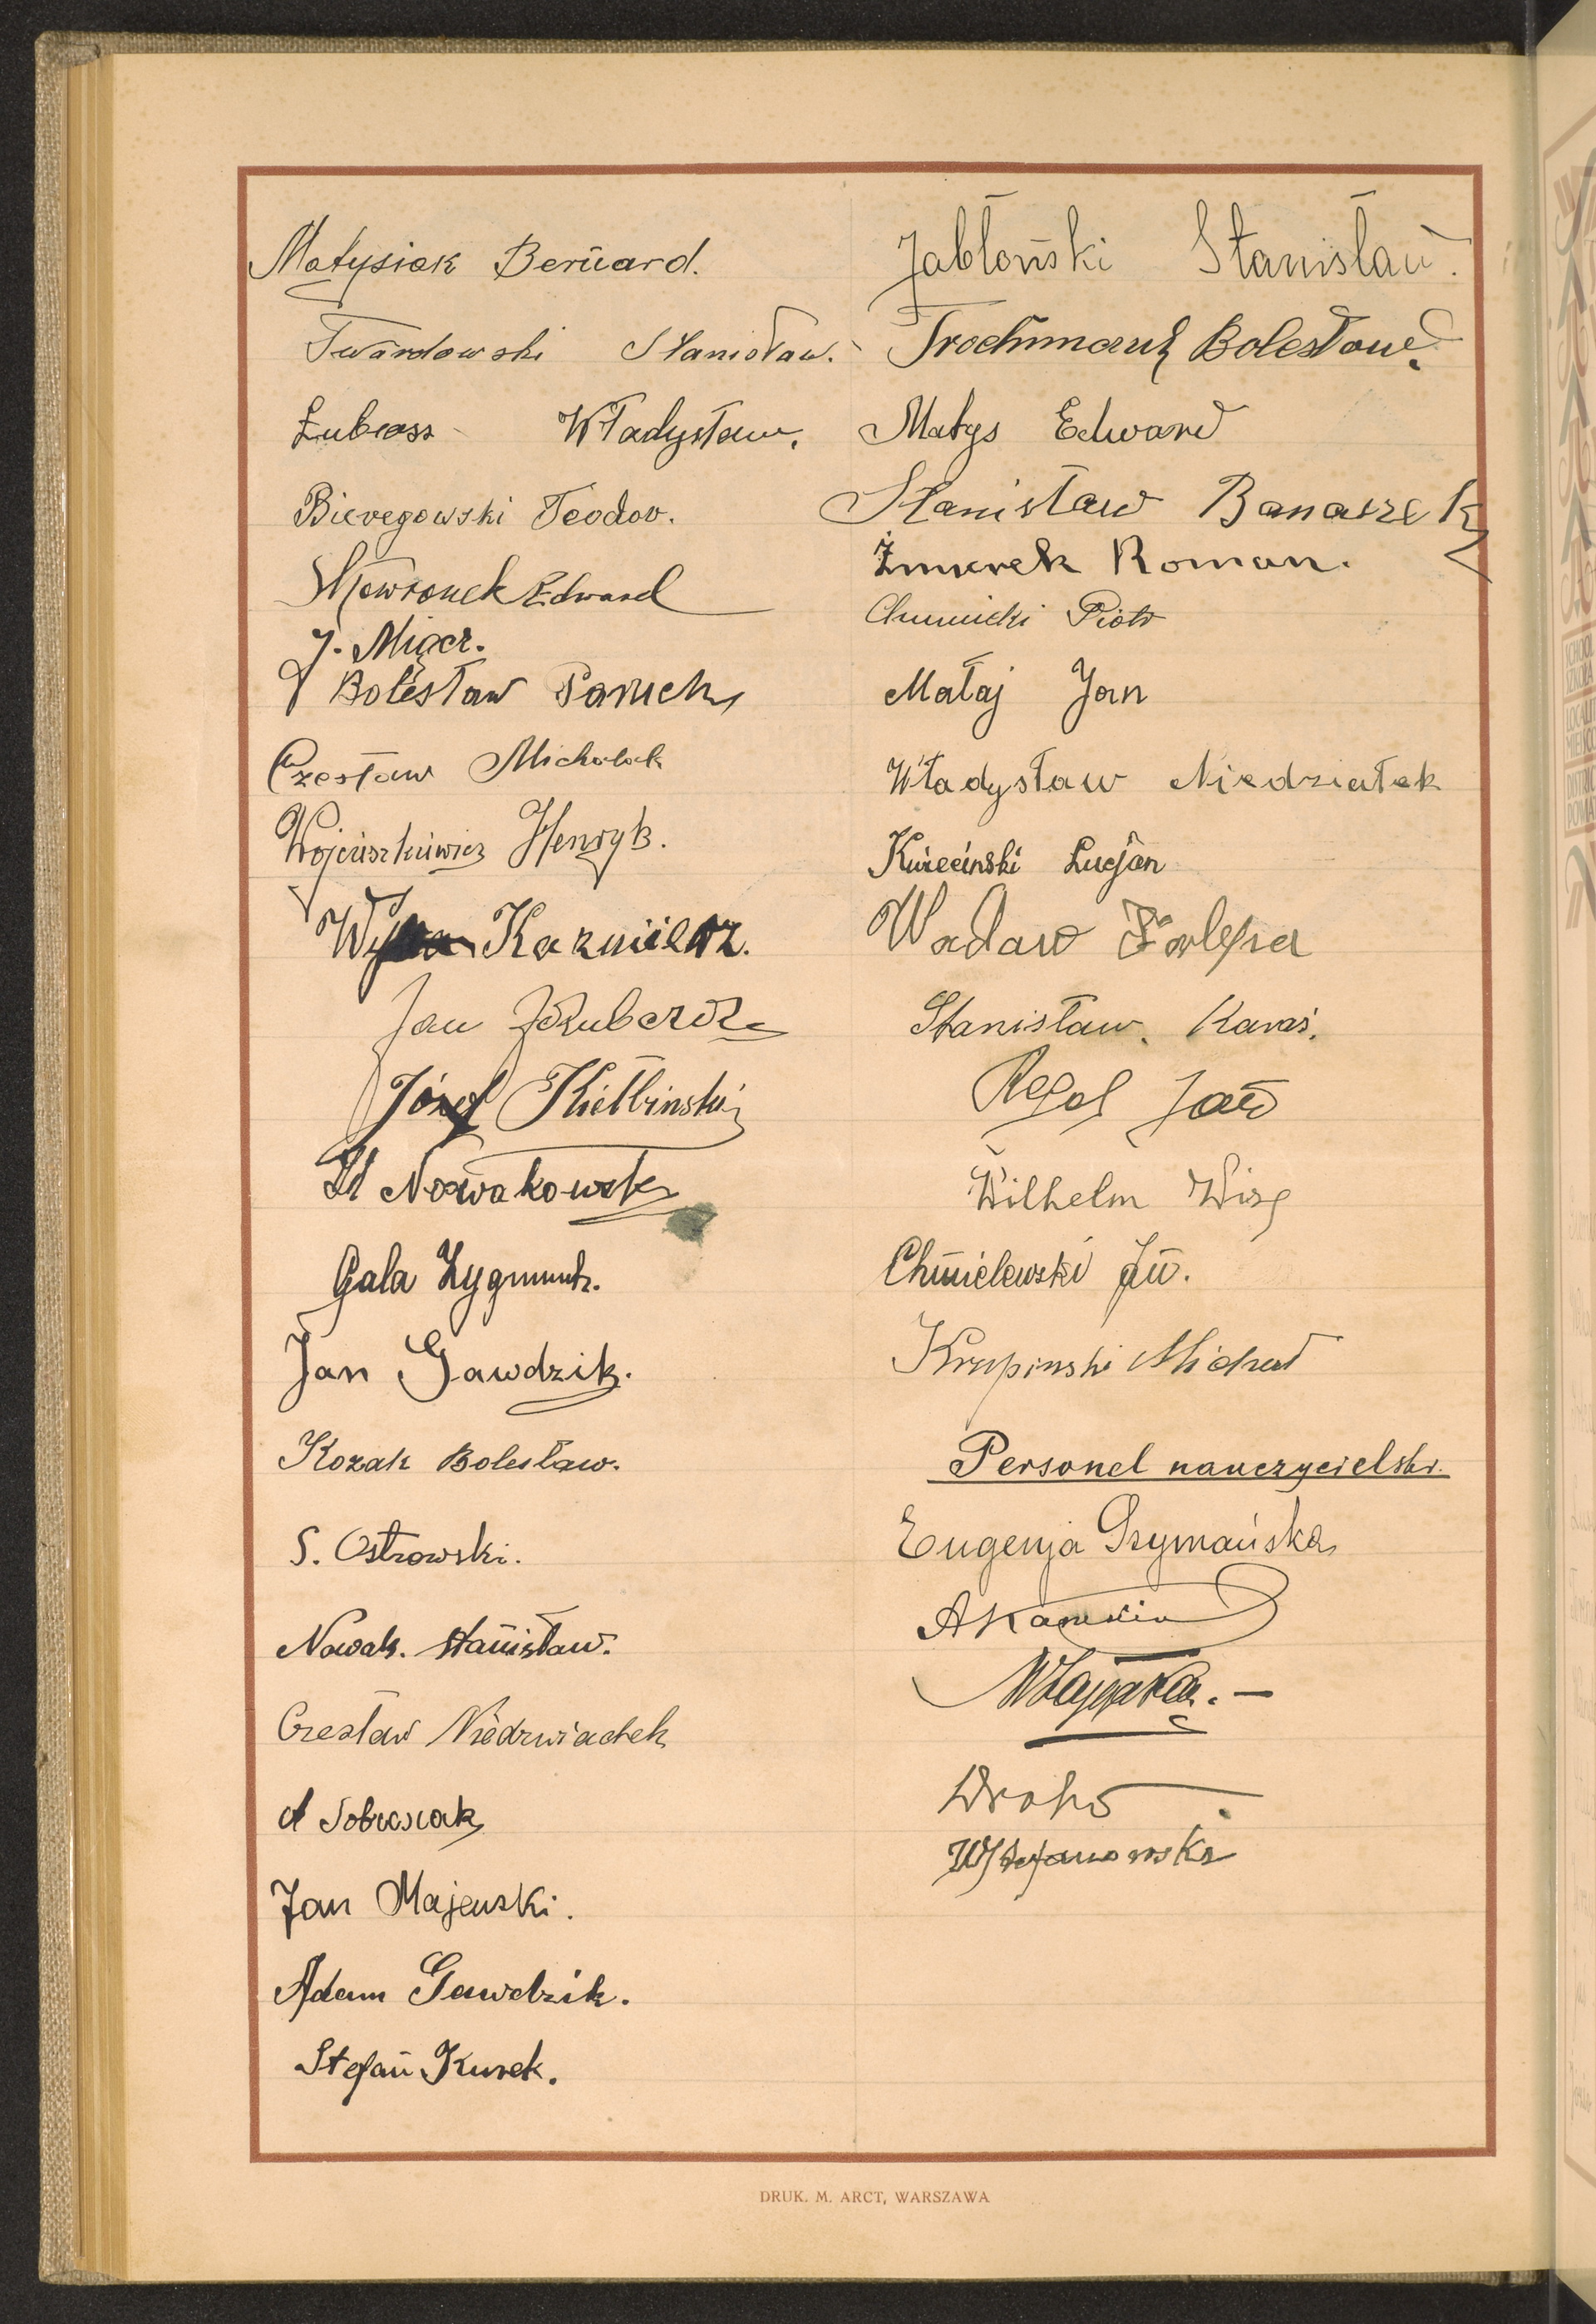 Matysiak Bernard.
Twardowski Stanisław.
Władysław.
Bieregowski Teodor.
Wawronek Edward
J. Miger.
Bolesław Paruch
Czesław Michalak
Wojcieszkiewicz Henryk.
Kazmierz.
Jan
Józef Kiełbinski
St Nowakowski
Gala Zygmunt.
Jan Gawdzik.
Kozak Bolesław.
S. Ostrowski.
Nowak. Stanisław.
Czesław Niedzwiadek
A Sobiesiak
Jan Majewski.
Adam Gawdzik.
Stefan Kurek.
Jabłoński Stanisław.
Trochimiuk Bolesław.
Matys Edward
Stanisław Banaszek
Żmurek Roman.
Piotr
Małaj Jan
Władysław Niedziałek
Kurzeciński Lucjan
Wacław
Stanisław. Karaś.
Jan
Wilhelm
Chmielewski
Krupinski Michał
Personel nauczycielski.
Eugenja Szymańska
W Stefanowska
DRUK. M. ARCT, WARSZAWA